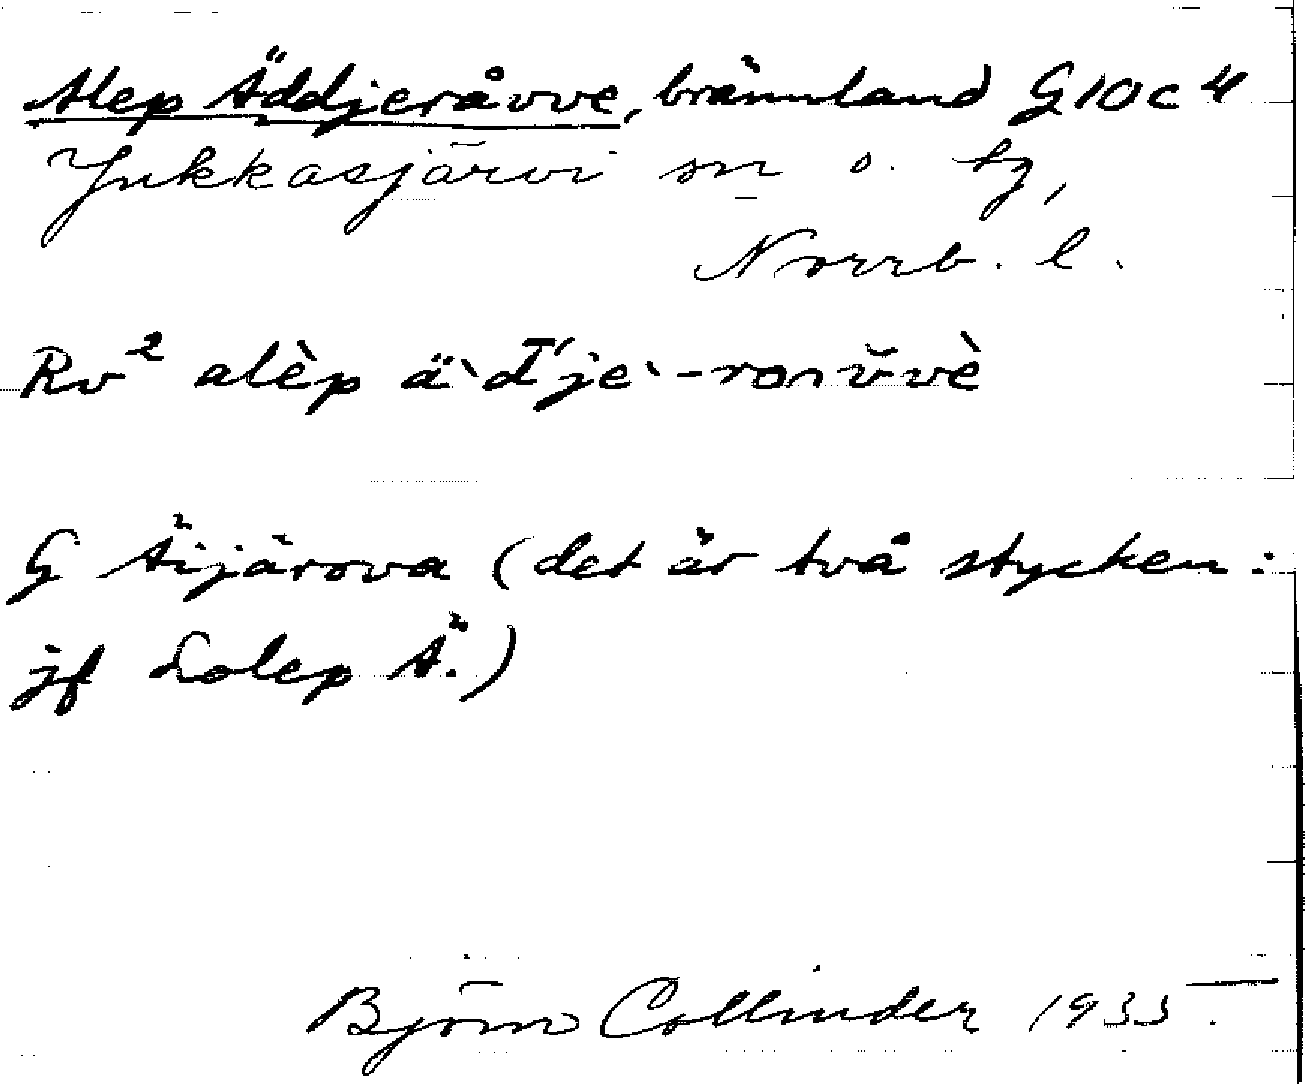 Alep Äddjeråvve, brännland G10c4
Jukkasjärvi sn o. tg,
Norrb. l.
Rv² alèp
G Äijärova (det är två stycken:
jf Lolep Ä.)
Björn Collinder 1935.